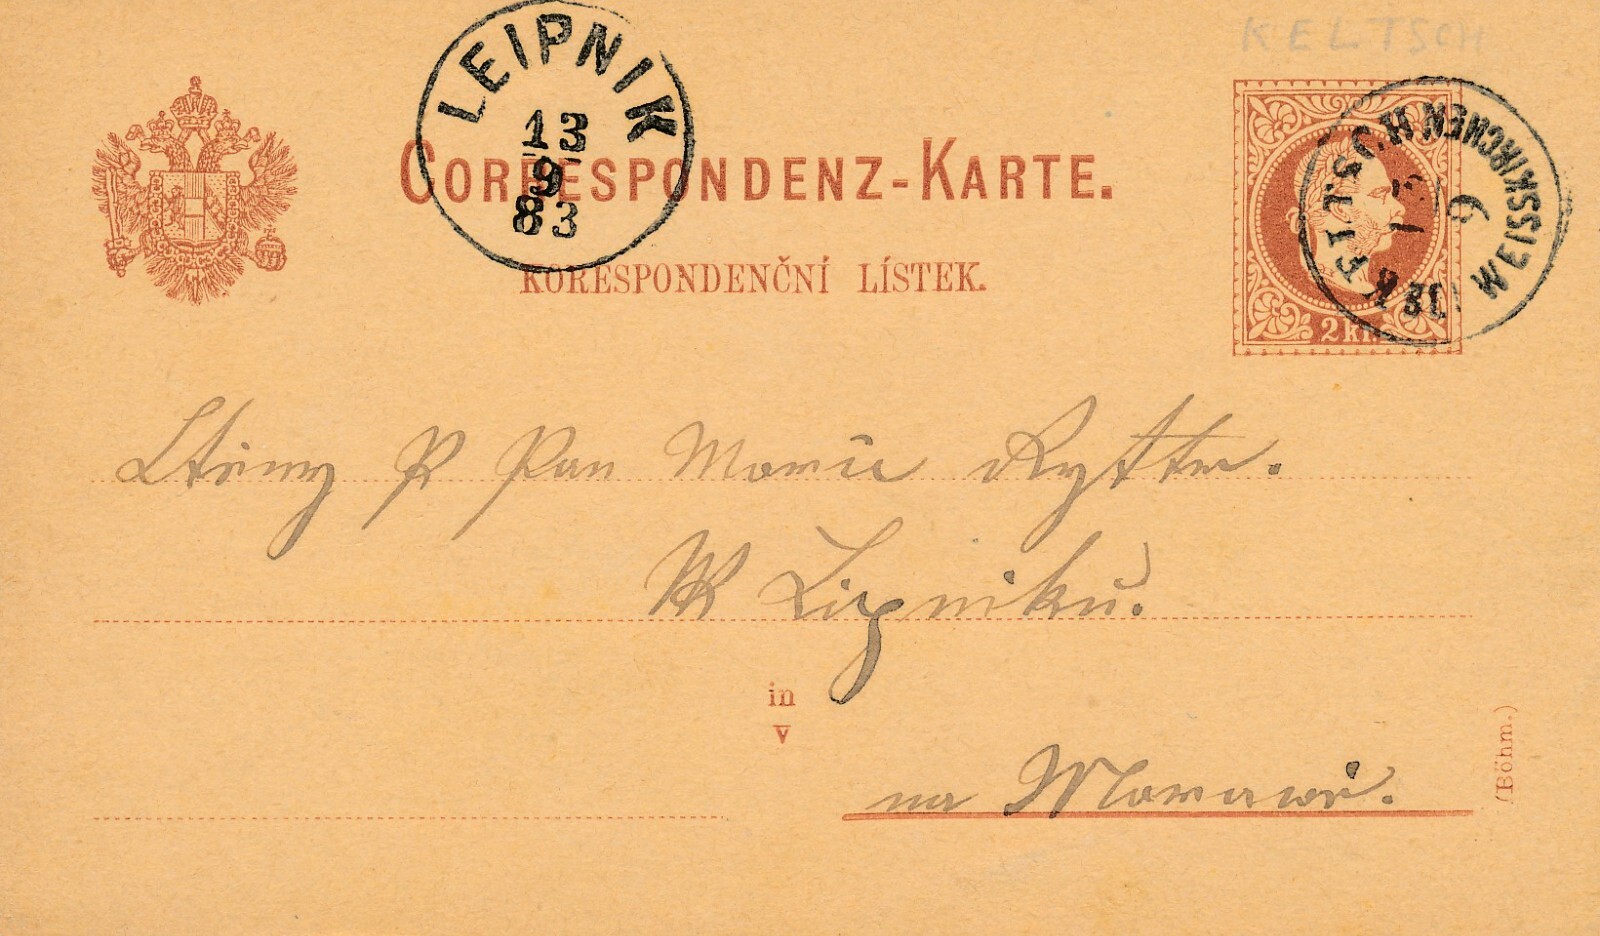 KELTSCH
LEIPNIK
13
9
83
CORRESPONDENZ-KARTE.
KORESPONDENČNÍ LÍSTEK.
2 kr.
KELTSCH WEISSKIRCHEN
13
9
Ctěnny P Pan Moric Ryttr.
W Lipniku.
in
v
na Morawě.
(Böhm.)